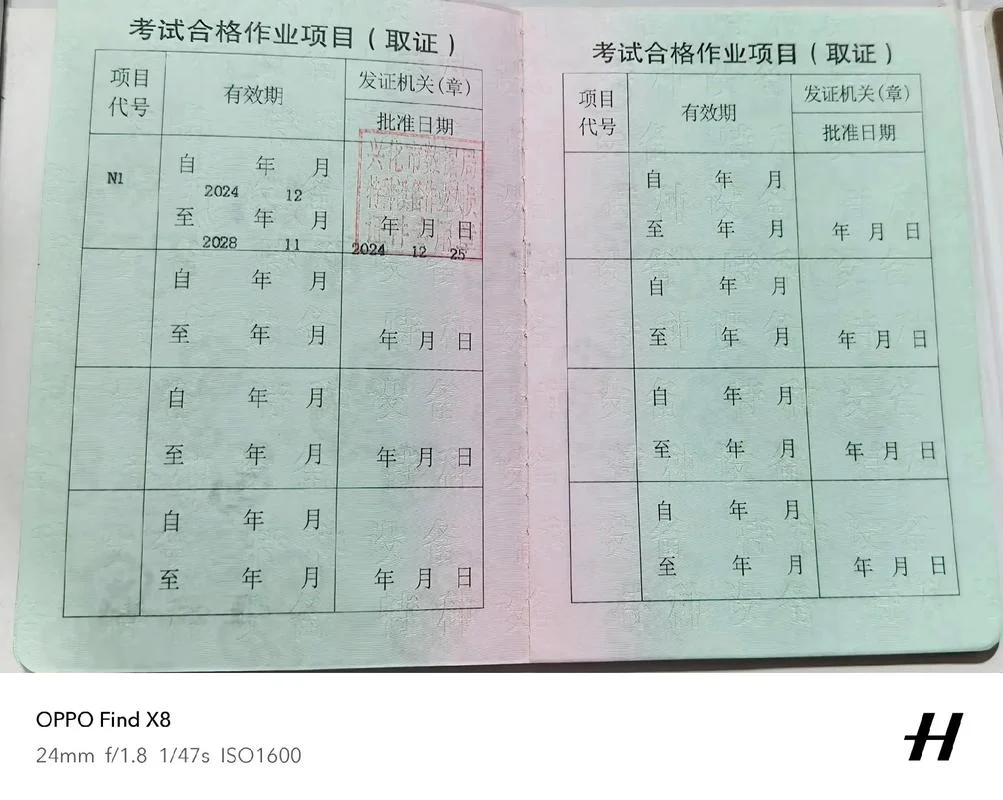 考试合格作业项目（取证）
项目
代号
有效期
发证机关(章)
批准日期
N1
自 年 月
2024 12
至 年 月
2028 11
兴化市数据局
年 月 日
2024 12 25
自 年 月
至 年 月
年 月 日
自 年 月
至 年 月
年 月 日
自 年 月
至 年 月
年 月 日
考试合格作业项目（取证）
项目
代号
有效期
发证机关(章)
批准日期
自 年 月
至 年 月
年 月 日
自 年 月
至 年 月
年 月 日
自 年 月
至 年 月
年 月 日
自 年 月
至 年 月
年 月 日
OPPO Find X8
24mm f/1.8 1/47s ISO1600